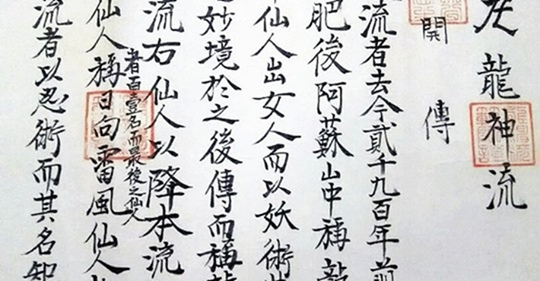 龍神流
開傳
流者去今貳千九百年前
肥後阿蘇山中稱龍
仙人出女人而以妖術
妙境於之後傳而稱龍
流右仙人以降本流
者百壹名而最後之仙人
仙人稱日向雷風仙人
流者以忍術而其名知